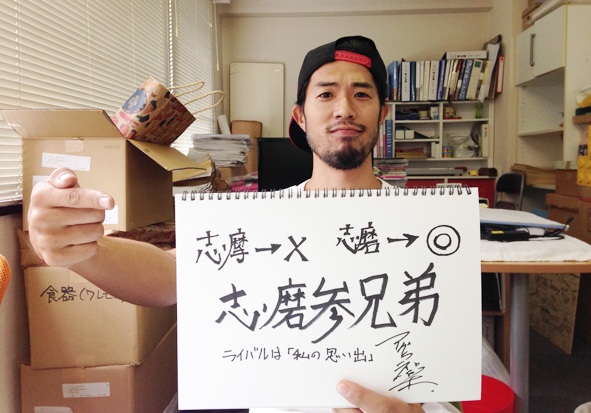 志摩→× 志磨→◎
志磨参兄弟
ライバルは「私の思い出」
食器(ワレモ